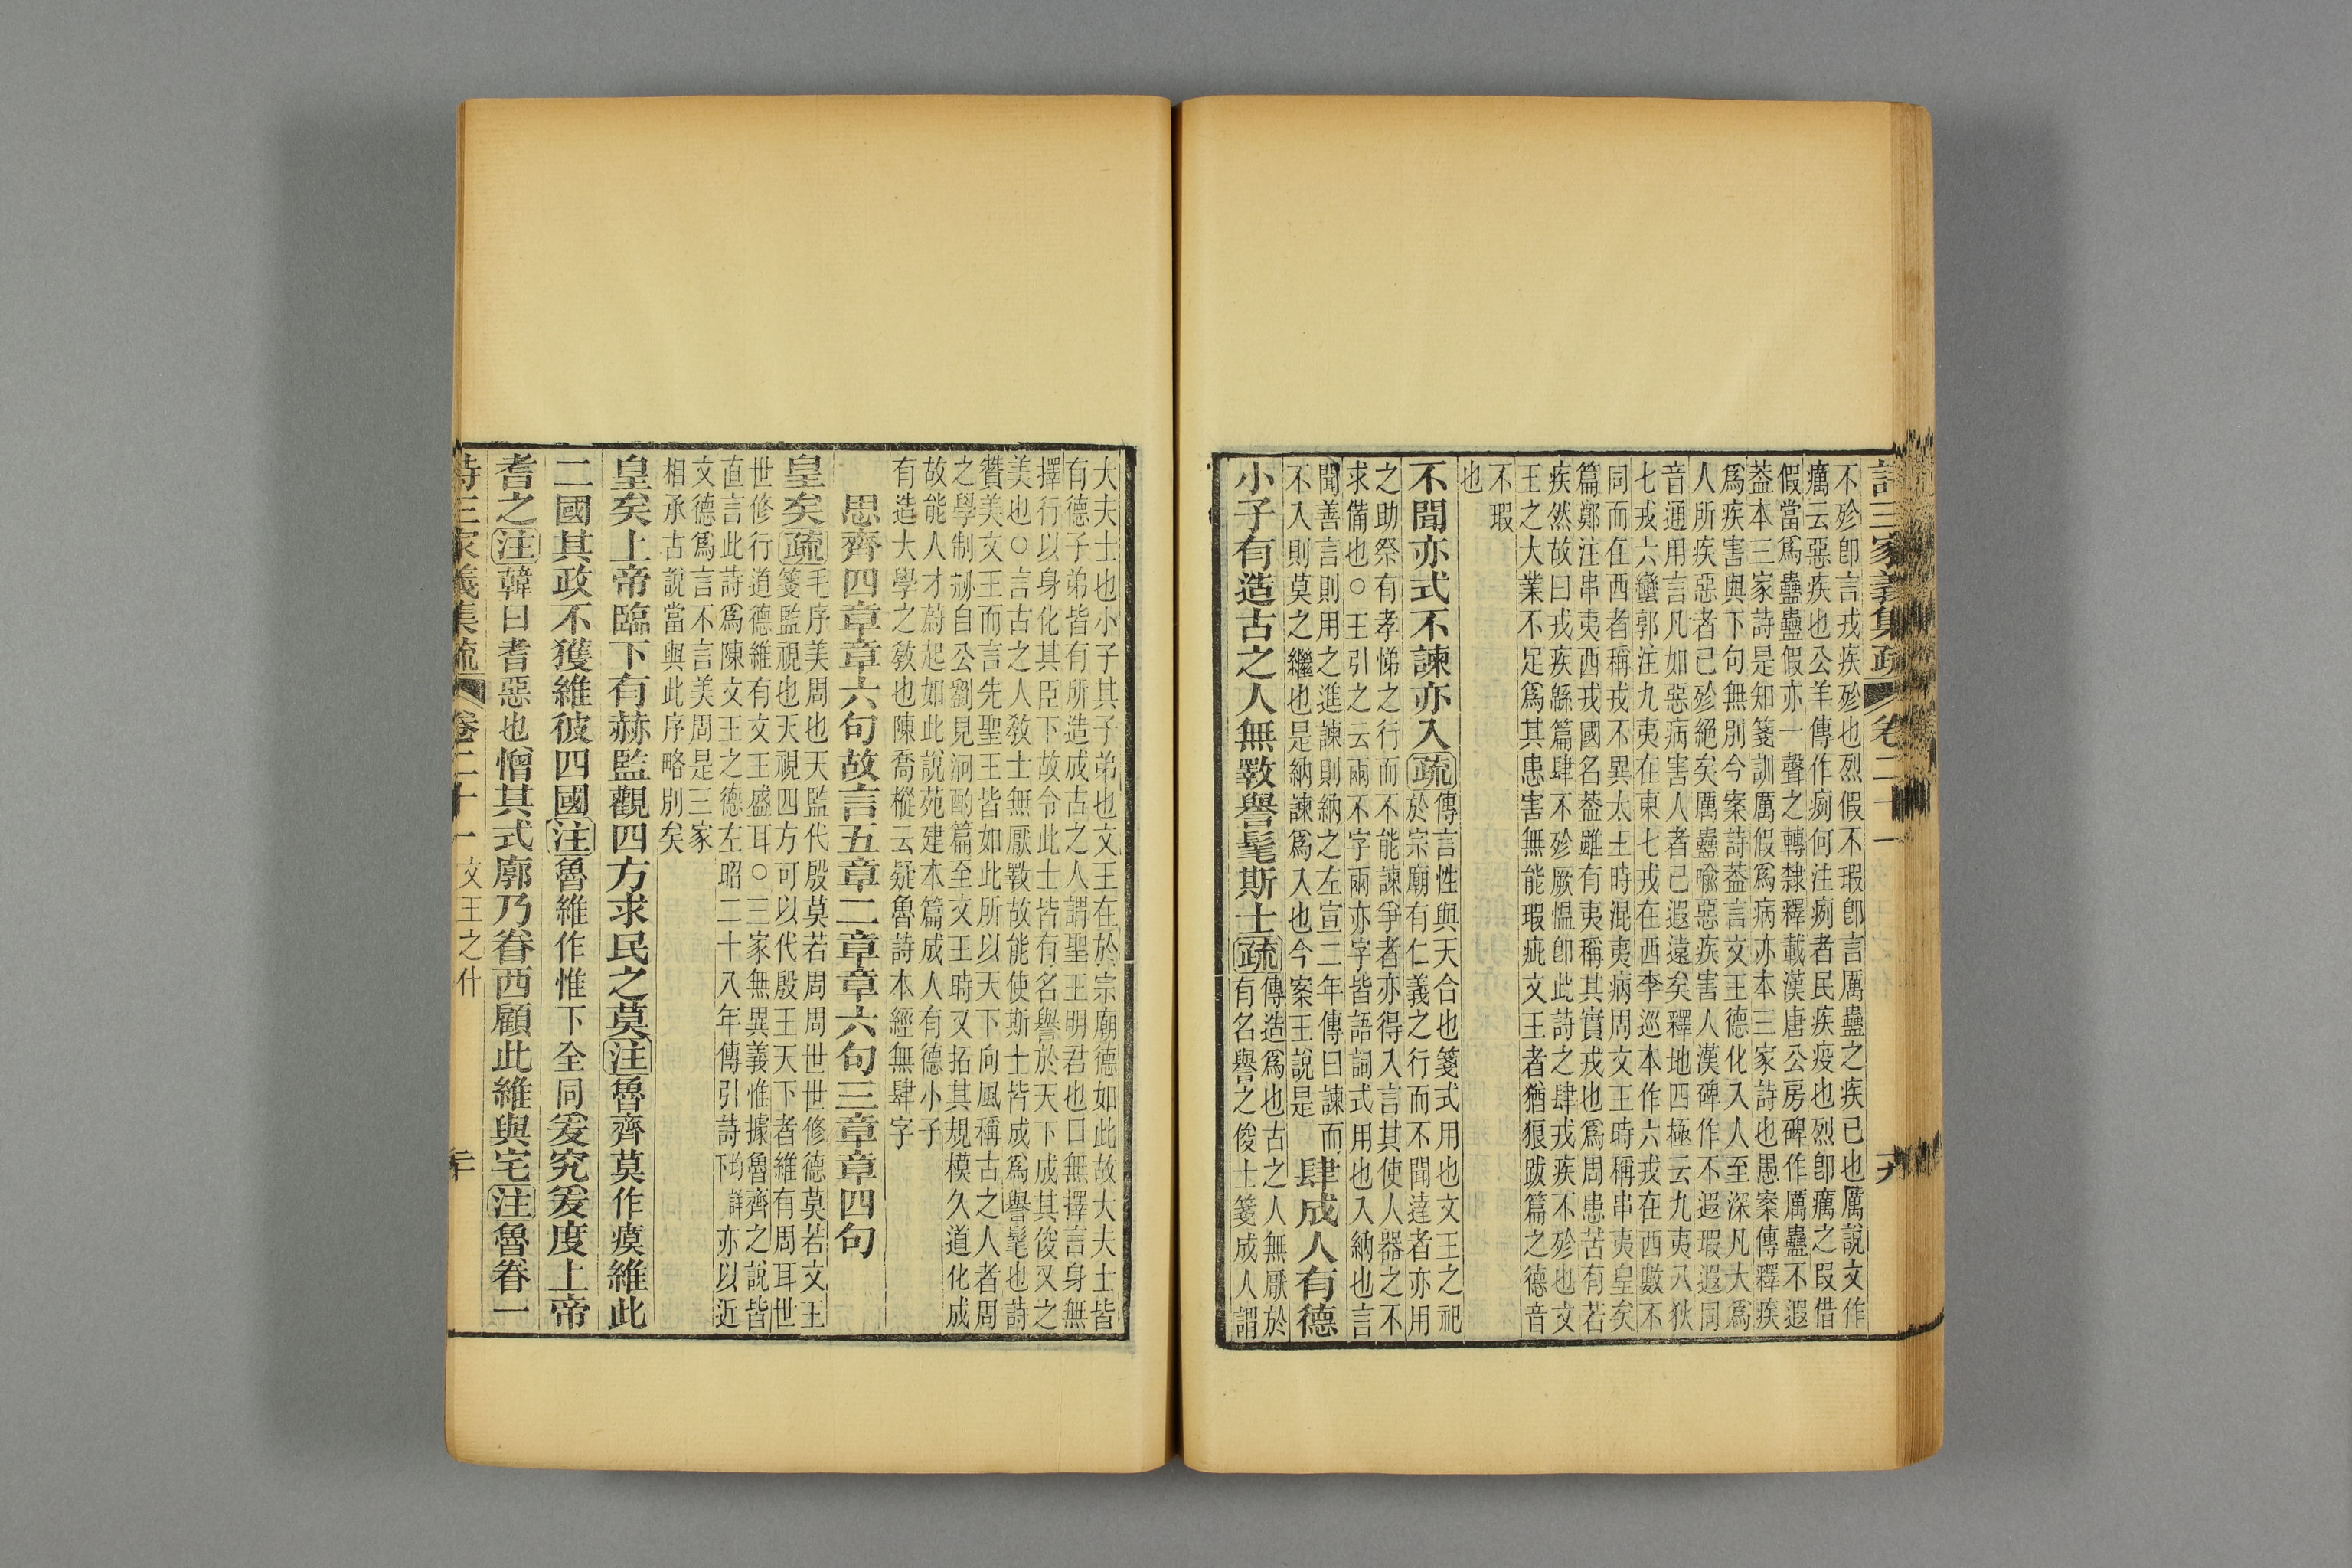 詩三家義集疏 卷二十一 十九
不殄卽言戎疾殄也烈假不瑕卽言厲蠱之疾已也厲說文作
癘云惡疾也公羊傳作㾐何注㾐者民疾疫也烈卽癘之叚借
假當爲蠱蠱假亦一聲之轉隸釋載漢唐公房碑作厲蠱不遐
葢本三家詩是知箋訓厲假爲病亦本三家詩也愚案傳釋疾
爲疾害與下句無別今案詩葢言文王德化入人至深凡大爲
人所疾惡者已殄絕矣厲蠱喻惡疾害人漢碑作不遐瑕遐同
音通用言凡如惡病害人者已遐遠矣釋地四極云九夷八狄
七戎六蠻郭注九夷在東七戎在西李巡本作六戎在西數不
同而在西者稱戎不異太王時混夷病周文王時稱串夷皇矣
篇鄭注串夷西戎國名葢雖有夷稱其實戎也爲周患苦有若
疾然故曰戎疾緜篇肆不殄厥慍卽此詩之肆戎疾不殄也文
王之大業不足爲其患害無能瑕疵文王者猶狼跋篇之德音
不瑕
也
不聞亦式不諫亦入疏傳言性與天合也箋式用也文王之祀
於宗廟有仁義之行而不聞達者亦用
之助祭有孝悌之行而不能諫爭者亦得入言其使人器之不
求備也○王引之云兩不字兩亦字皆語詞式用也入納也言
聞善言則用之進諫則納之左宣二年傳曰諫而
不入則莫之繼也是納諫爲入也今案王說是肆成人有德
小子有造古之人無斁譽髦斯士疏傳造爲也古之人無厭於
有名譽之俊士箋成人謂
大夫士也小子其子弟也文王在於宗廟德如此故大夫士皆
有德子弟皆有所造成古之人謂聖王明君也口無擇言身無
擇行以身化其臣下故令此士皆有名譽於天下成其俊乂之
美也○言古之人敎士無厭斁故能使斯士皆成爲譽髦也詩
贊美文王而言先聖王皆如此所以天下向風稱古之人者周
之學制刱自公劉見泂酌篇至文王時又拓其規模久道化成
故能人才蔚起如此說苑建本篇成人有德小子
有造大學之敎也陳喬樅云疑魯詩本經無肆字
思齊四章章六句故言五章二章章六句三章章四句
皇矣疏毛序美周也天監代殷莫若周周世世修德莫若文王
箋監視也天視四方可以代殷王天下者維有周耳世
世修行道德維有文王盛耳○三家無異義惟據魯齊之說皆
直言此詩爲陳文王之德左昭二十八年傳引詩均詳下亦以近
文德爲言不言美周是三家
相承古說當與此序略別矣
皇矣上帝臨下有赫監觀四方求民之莫注魯齊莫作瘼維此
二國其政不獲維彼四國注魯維作惟下全同爰究爰度上帝
耆之注韓曰耆惡也憎其式廓乃眷西顧此維與宅注魯眷一
詩三家義集疏 卷二十一 文王之什 二十